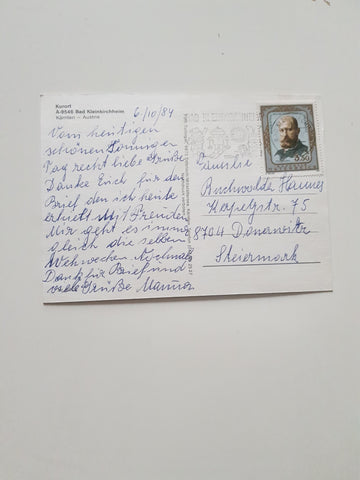 Kurort
A-9546 Bad Kleinkirchheim
Kärnten – Austria
6/10/84
Vom heutigen
schönen
Tag recht liebe Grüße
Danke Euch für den
Brief den ich heute
erhielt Mit Freuden
Mir geht es immer
gleich die selben
Wehwechen Nochmals
Dank für Brief und
viele Grüße
5.50
Familie
Buchwalda Hannes
75
8704 Donawitz
Steiermark